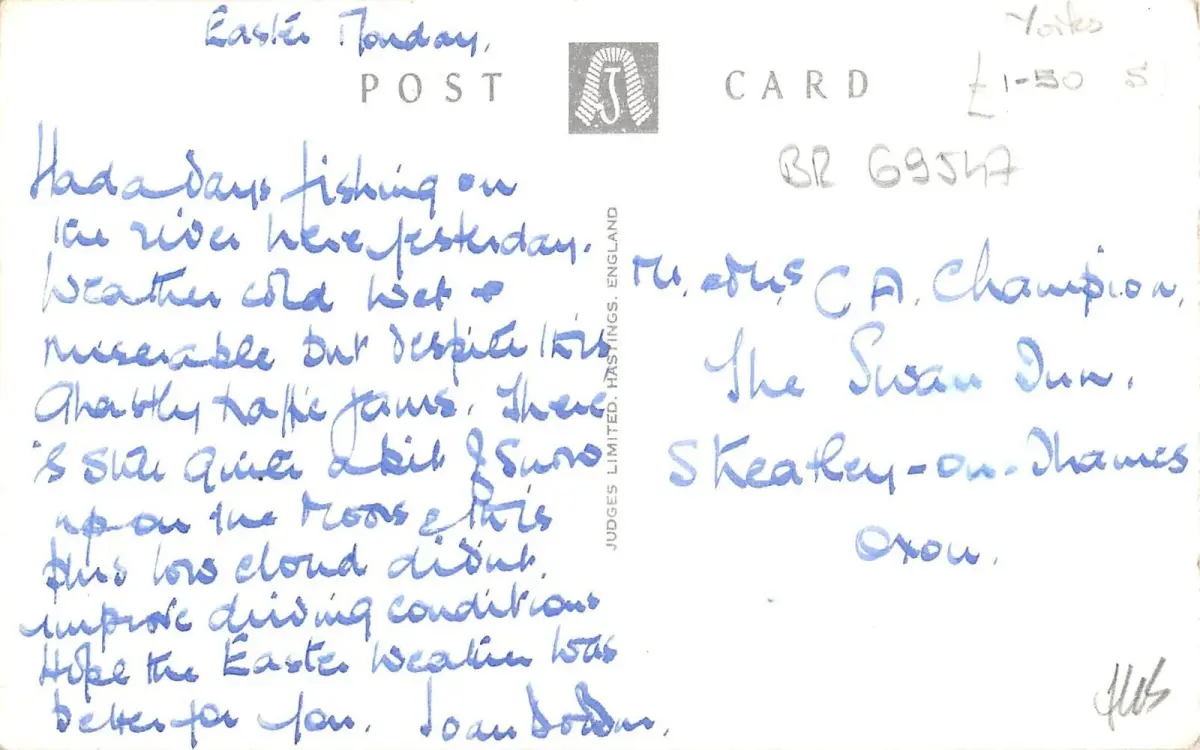 Easter Monday.
POST CARD
J
Yorks
£1-50 S
BR 69547
Had a days fishing on
the river here yesterday.
Weather cold wet &
miserable but despite this
Ghastly traffic jams. There
is still quite a bit of snow
up on the Moors & this
plus low cloud didnt
improve driving conditions
Hope the Easter weather was
better for you. Joan
JUDGES LIMITED, HASTINGS, ENGLAND
Mr. & Mrs C A. Champion,
The Swan Inn.
Streatley-on-Thames
Oxon.